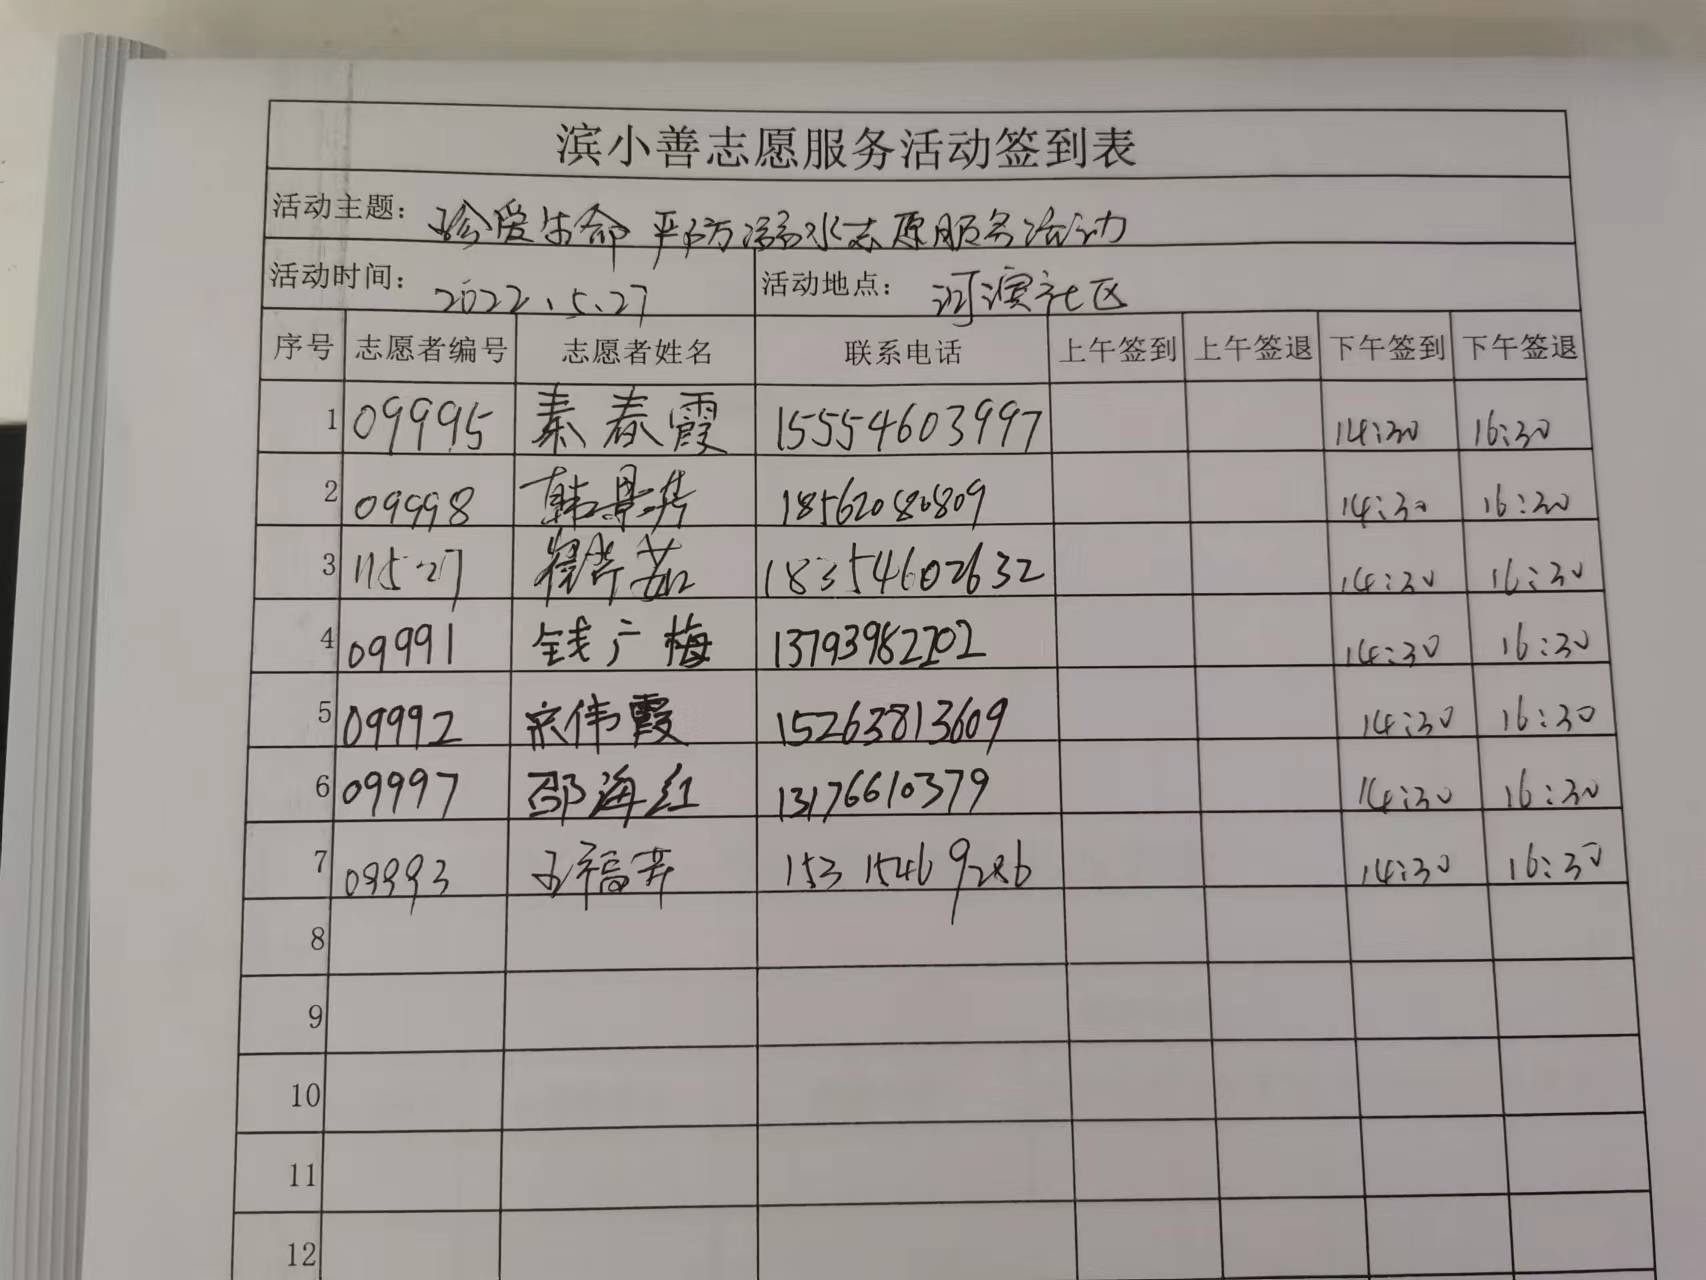 滨小善志愿服务活动签到表
活动主题： 珍爱生命 严防溺水志愿服务活动
活动时间： 2022.5.27 活动地点： 河滨社区
序号 志愿者编号 志愿者姓名 联系电话 上午签到 上午签退 下午签到 下午签退
1 09995 秦春霞 15554603997 14:30 16:30
2 09998 韩景华 18562080809 14:30 16:30
3 11527 18354602632 14:30 16:30
4 09991 钱广梅 13793982202 14:30 16:30
5 09992 宋伟霞 15263813609 14:30 16:30
6 09997 邵海红 13176610379 14:30 16:30
7 09993 15315469286 14:30 16:30
8
9
10
11
12